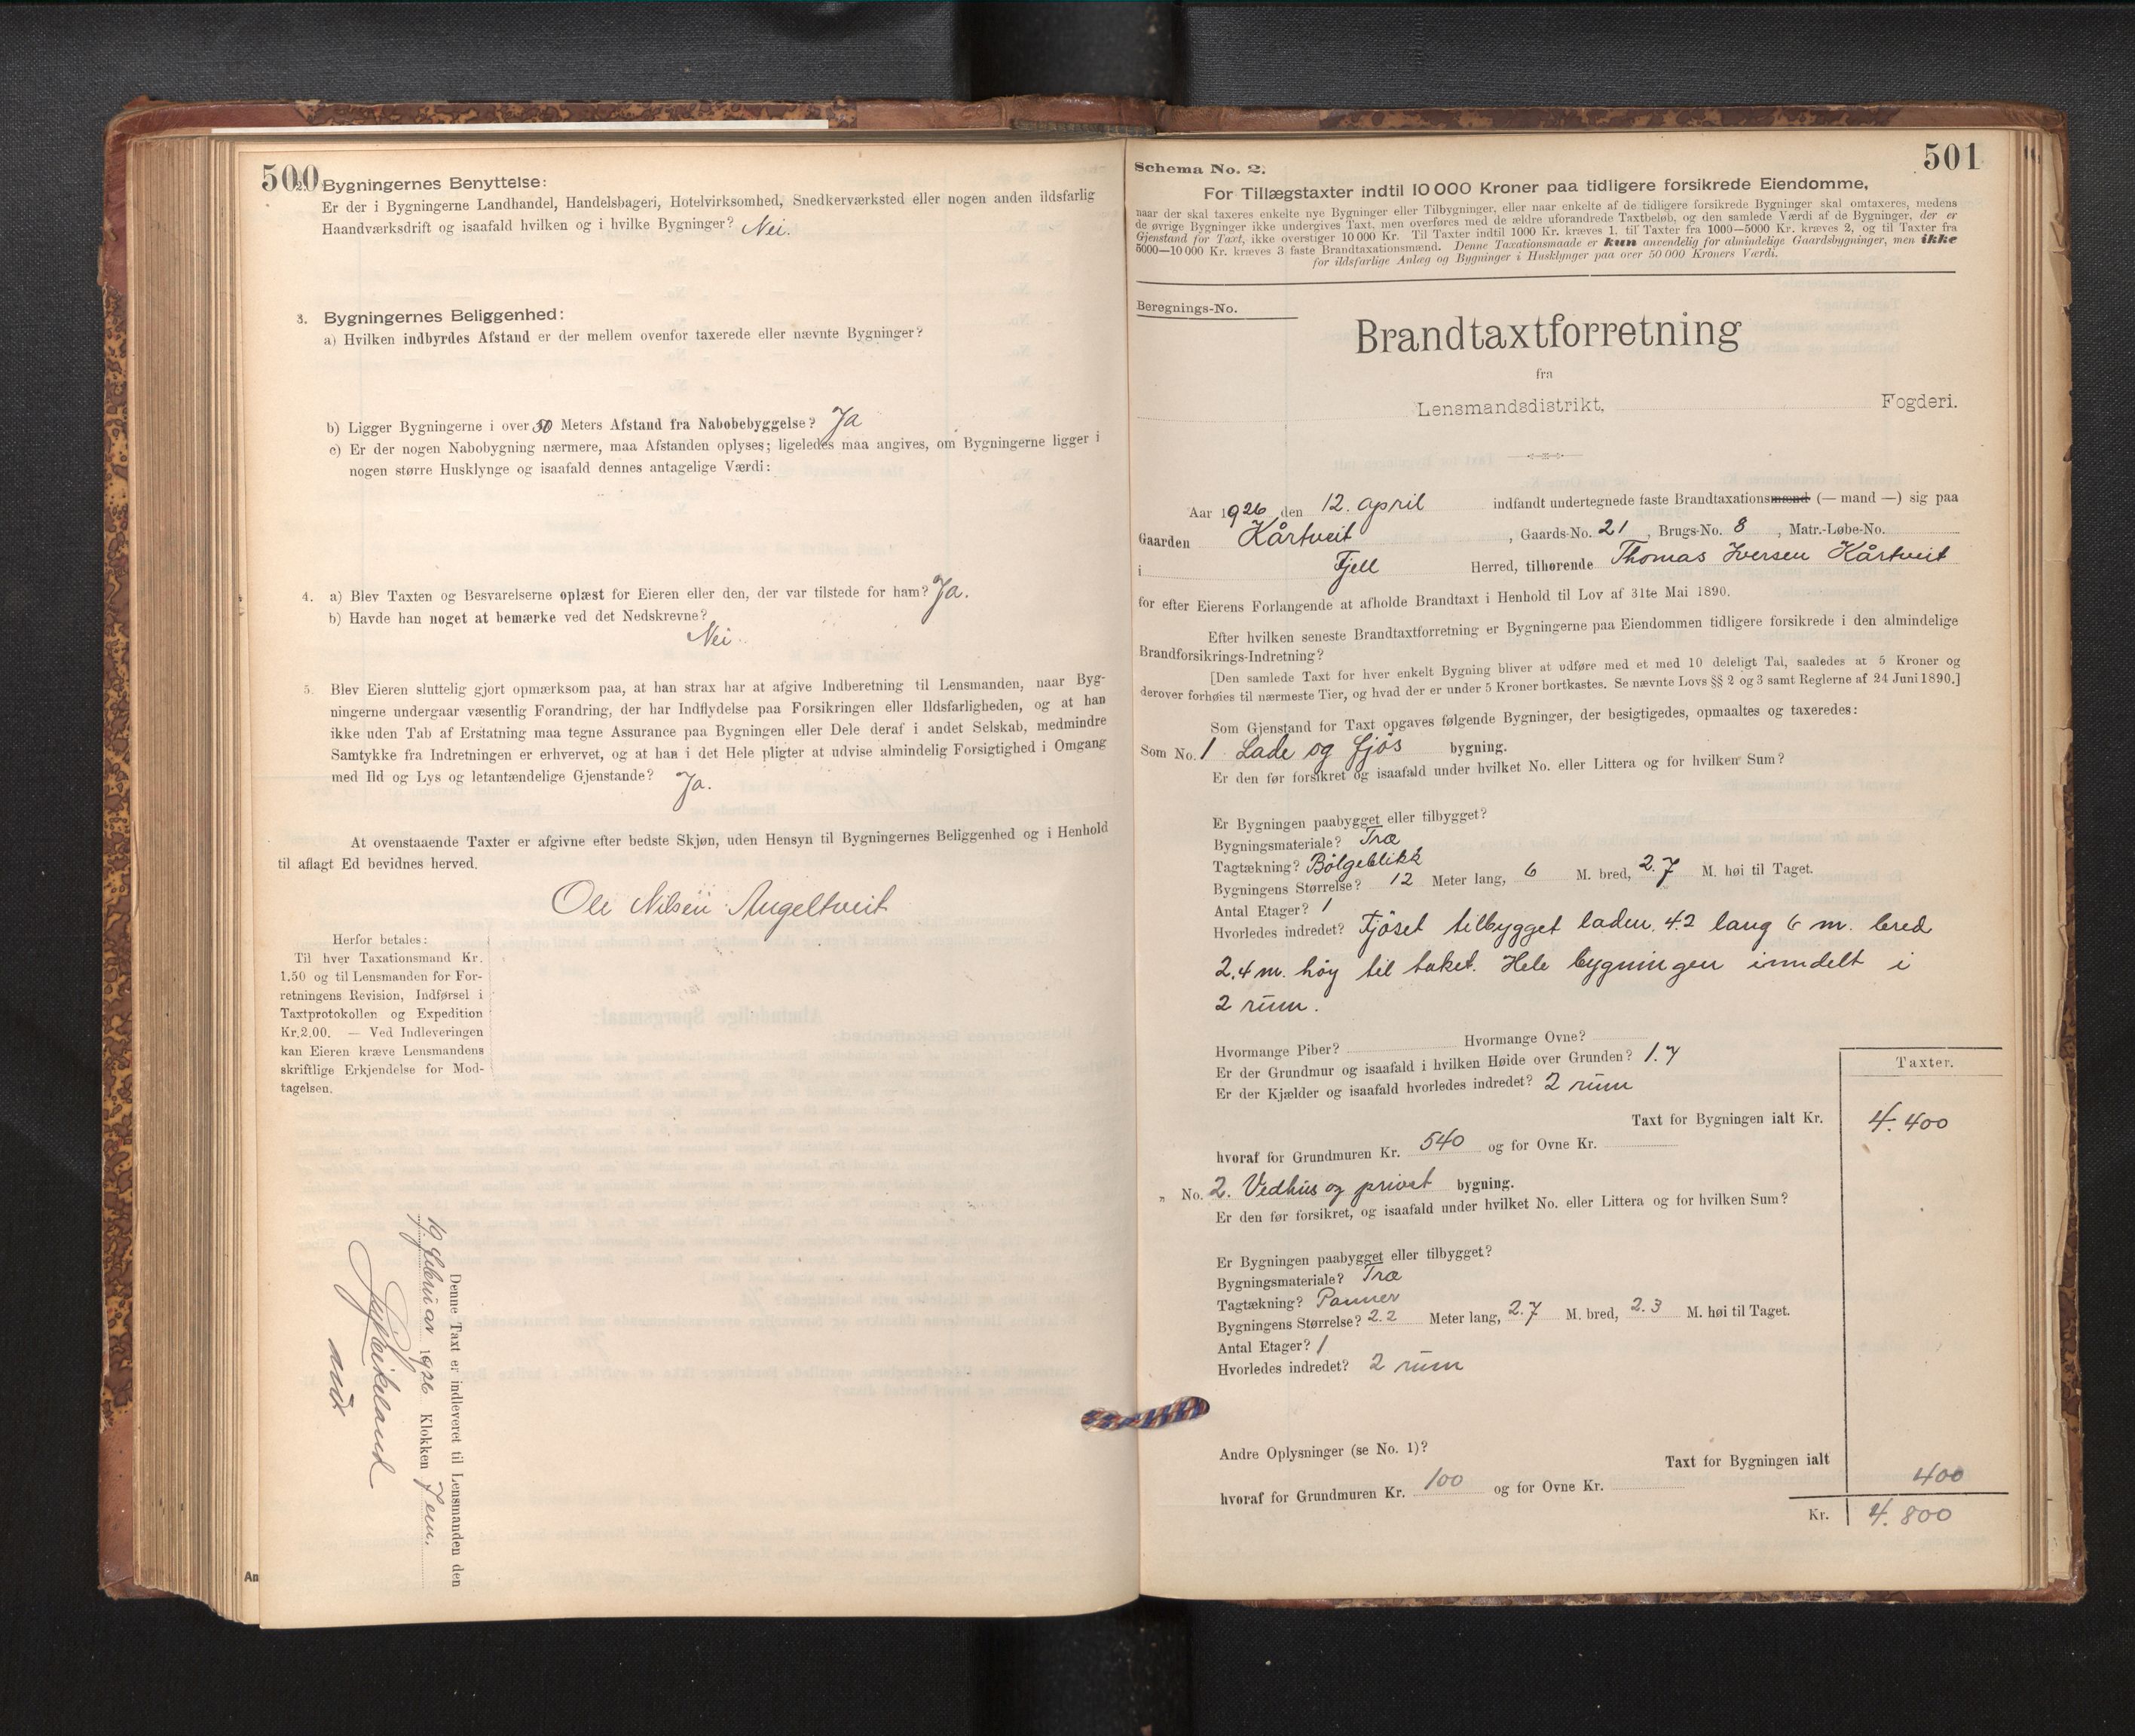 500
2. Bygningernes Benyttelse:
Er der i Bygningerne Landhandel, Handelsbageri, Hotelvirksomhed, Snedkerværksted eller nogen anden ildsfarlig
Haandværksdrift og isaafald hvilken og i hvilke Bygninger? Nei.
3. Bygningernes Beliggenhed:
a) Hvilken indbyrdes Afstand er der mellem ovenfor taxerede eller nævnte Bygninger?
b) Ligger Bygningerne i over 50 Meters Afstand fra Nabobebyggelse? Ja
c) Er der nogen Nabobygning nærmere, maa Afstanden oplyses; ligeledes maa angives, om Bygningerne ligger i
nogen større Husklynge og isaafald dennes antagelige Værdi:
4. a) Blev Taxten og Besvarelserne oplæst for Eieren eller den, der var tilstede for ham? Ja.
b) Havde han noget at bemærke ved det Nedskrevne?
Nei.
5. Blev Eieren sluttelig gjort opmærksom paa, at han strax har at afgive Indberetning til Lensmanden, naar Byg-
ningerne undergaar væsentlig Forandring, der har Indflydelse paa Forsikringen eller Ildsfarligheden, og at han
ikke uden Tab af Erstatning maa tegne Assurance paa Bygningen eller Dele deraf i andet Selskab, medmindre
Samtykke fra Indretningen er erhvervet, og at han i det Hele pligter at udvise almindelig Forsigtighed i Omgang
med Ild og Lys og letantændelige Gjenstande? Ja.
At ovenstaaende Taxter er afgivne efter bedste Skjøn, uden Hensyn til Bygningernes Beliggenhed og i Henhold
til aflagt Ed bevidnes herved.
Ole Nilsen Angeltveit
Herfor betales:
Til hver Taxationsmand Kr.
1.50 og til Lensmanden for For-
retningens Revision, Indførsel i
Taxtprotokollen og Expedition
Kr. 2.00. — Ved Indleveringen
kan Eieren kræve Lensmandens
skriftlige Erkjendelse for Mod-
tagelsen.
Denne Taxt er indleveret til Lensmanden den
februar 1926 Klokken 7 em.
An
501
Schema No. 2.
For Tillægstaxter indtil 10 000 Kroner paa tidligere forsikrede Eiendomme,
naar der skal taxeres enkelte nye Bygninger eller Tilbygninger, eller naar enkelte af de tidligere forsikrede Bygninger skal omtaxeres, medens
de øvrige Bygninger ikke undergives Taxt, men overføres med de ældre uforandrede Taxtbeløb, og den samlede Værdi af de Bygninger, der er
Gjenstand for Taxt, ikke overstiger 10 000 Kr. Til Taxter indtil 1000 Kr. kræves 1, til Taxter fra 1000—5000 Kr. kræves 2, og til Taxter fra
5000—10 000 Kr. kræves 3 faste Brandtaxationsmænd. Denne Taxationsmaade er kun anvendelig for almindelige Gaardsbygninger, men ikke
for ildsfarlige Anlæg og Bygninger i Husklynger paa over 50 000 Kroners Værdi.
Beregnings-No.
Brandtaxtforretning
fra
Lensmandsdistrikt, Fogderi.
Aar 1926 den 12. april indfandt undertegnede faste Brandtaxationsmænd (— mand —) sig paa
Gaarden Kårtveit, Gaards-No. 21, Brugs-No. 8, Matr.-Løbe-No.
i Fjell Herred, tilhørende Thomas Iversen Kårtveit
for efter Eierens Forlangende at afholde Brandtaxt i Henhold til Lov af 31te Mai 1890.
Efter hvilken seneste Brandtaxtforretning er Bygningerne paa Eiendommen tidligere forsikrede i den almindelige
Brandforsikrings-Indretning?
[Den samlede Taxt for hver enkelt Bygning bliver at udføre med et med 10 deleligt Tal, saaledes at 5 Kroner og
derover forhøies til nærmeste Tier, og hvad der er under 5 Kroner bortkastes. Se nævnte Lovs §§ 2 og 3 samt Reglerne af 24 Juni 1890.]
Som Gjenstand for Taxt opgaves følgende Bygninger, der besigtigedes, opmaaltes og taxeredes:
Som No. 1 Lade og fjøs bygning.
Er den før forsikret og isaafald under hvilket No. eller Littera og for hvilken Sum?
Er Bygningen paabygget eller tilbygget?
Bygningsmateriale? Træ
Tagtækning? Bølgeblikk
Bygningens Størrelse? 12 Meter lang, 6 M. bred, 2.7 M. høi til Taget.
Antal Etager? 1
Hvorledes indredet? Fjøset tilbygget laden. 4.2 lang 6 m. bred
2,4 m. høy til taket. Hele bygningen inndelt i
2 rum.
Hvormange Piber? Hvormange Ovne?
Er der Grundmur og isaafald i hvilken Høide over Grunden? 1.7
Er der Kjælder og isaafald hvorledes indredet? 2 rum
Taxter.
Taxt for Bygningen ialt Kr. 4.400
hvoraf for Grundmuren Kr. 540 og for Ovne Kr.
" No. 2. Vedhus og privet bygning.
Er den før forsikret, og isaafald under hvilket No. eller Littera og for hvilken Sum?
Er Bygningen paabygget eller tilbygget?
Bygningsmateriale? Træ
Tagtækning? Panner
Bygningens Størrelse? 2.2 Meter lang, 2.7 M. bred, 2.3 M. høi til Taget.
Antal Etager? 1
Hvorledes indredet? 2 rum
Andre Oplysninger (se No. 1)?
Taxt for Bygningen ialt 400
hvoraf for Grundmuren Kr. 100 og for Ovne Kr.
Kr. 4.800